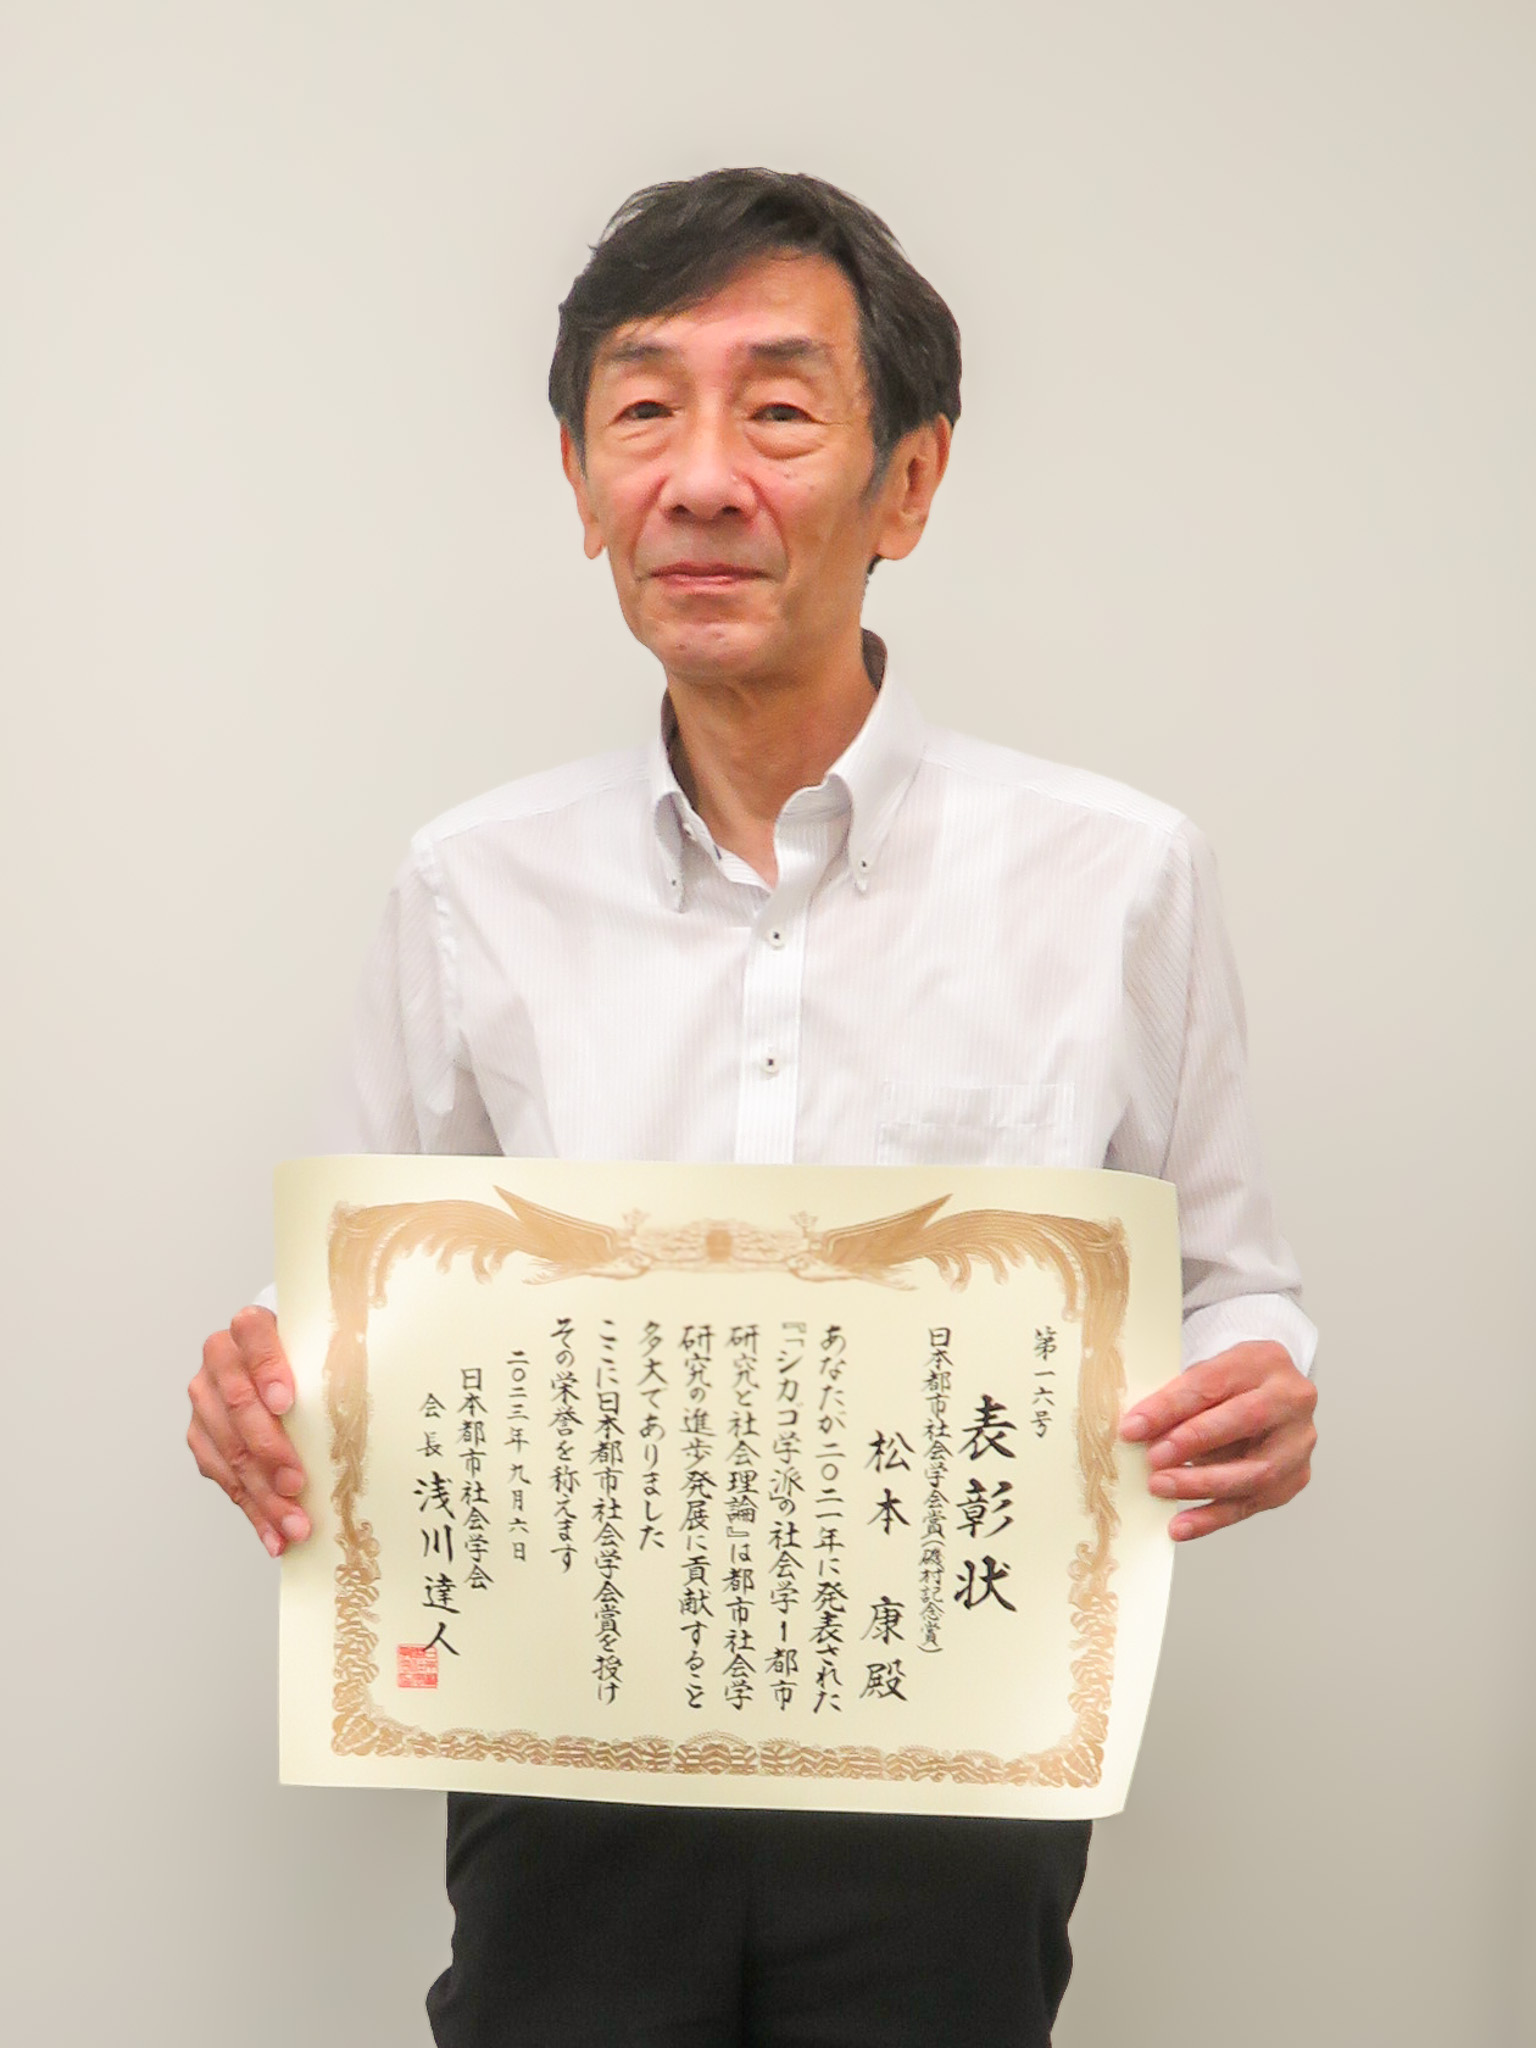 第一六号
表彰状
日本都市社会学会賞(磯村記念賞)
松本 康 殿
あなたが二〇二一年に発表された
『「シカゴ学派」の社会学ー都市
研究と社会理論』は都市社会学
研究の進歩発展に貢献すること
多大でありました
ここに日本都市社会学会賞を授け
その栄誉を称えます
二〇二三年九月六日
日本都市社会学会
会長 浅川達人